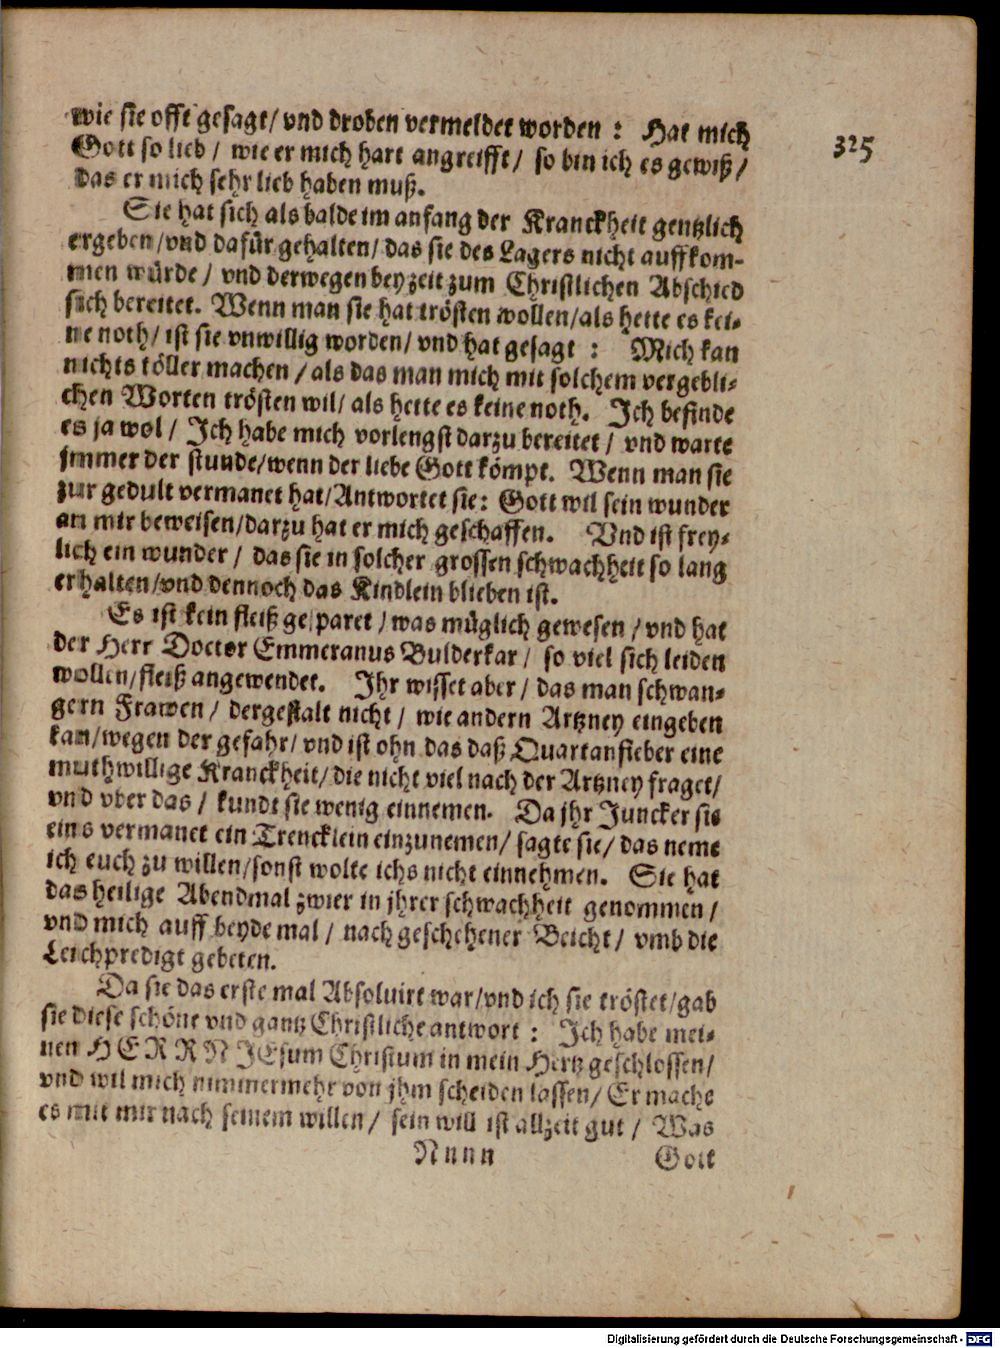 wie sie offt gesagt/ vnd droben vermeldet worden : Hat mich
325
Gott so lieb / wie er mich hart angreifft/ so bin ich es gewiß/
das er mich sehr lieb haben muß.
Sie hat sich als balde im anfang der Kranckheit gentzlich
ergeben/vnd dafür gehalten/ das sie des Lagers nicht auffkom-
men würde/ vnd derwegen bey zeit zum Christlichen Abschied
sich bereitet. Wenn man sie hat trösten wollen/als hette es kei-
ne noth/ ist sie vnwillig worden/ vnd hat gesagt : Mich kan
nichts töller machen / als das man mich mit solchem vergebli-
chen Worten trösten wil/ als hette es keine noth. Ich befinde
es ja wol / Ich habe mich vorlengst darzu bereitet / vnd warte
jmmer der stunde/wenn der liebe Gott kömpt. Wenn man sie
zur gedult vermanet hat/Antwortet sie: Gott wil sein wunder
an mir beweisen/darzu hat er mich geschaffen. Vnd ist frey-
lich ein wunder / das sie in solcher grossen schwachheit so lang
erhalten/vnd dennoch das Kindlein blieben ist.
Es ist kein fleiß gesparet / was müglich gewesen / vnd hat
der Herr Doctor Emmeranus Bulderkar / so viel sich leiden
wollen/fleiß angewendet. Ihr wisset aber / das man schwan-
gern Frawen / dergestalt nicht / wie andern Artzney eingeben
kan/wegen der gefahr/ vnd ist ohn das daß Quartanfieber eine
muthwillige Kranckheit/die nicht viel nach der Artzney fraget/
vnd vber das / kundt sie wenig einnemen. Da jhr Juncker sie
eins vermanet ein Trencklein einzunemen/ sagte sie/ das neme
ich euch zu willen/sonst wolte ichs nicht einnehmen. Sie hat
das heilige Abendmal zwier in jhrer schwachheit genommen /
vnd mich auff beyde mal / nach geschehener Beicht / vmb die
Leichpredigt gebeten.
Da sie das erste mal Absoluirt war/vnd ich sie tröstet/gab
sie diese schöne vnd gantz Christliche antwort : Ich habe mei-
nen HERRN JEsum Christum in mein Hertz geschlossen/
vnd wil mich nimmermehr von jhm scheiden lassen/ Er mache
es mit mir nach seinem willen / sein will ist allzeit gut / Was
Nnnn Gott
Digitalisierung gefördert durch die Deutsche Forschungsgemeinschaft - DFG